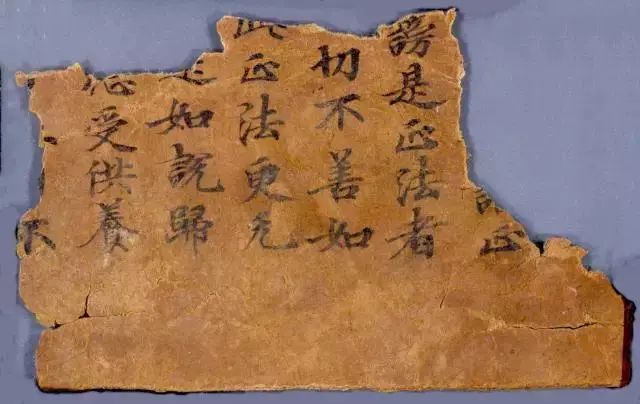 正
謗是正法者
切不善如
此正法更无
如說歸
受供養
不